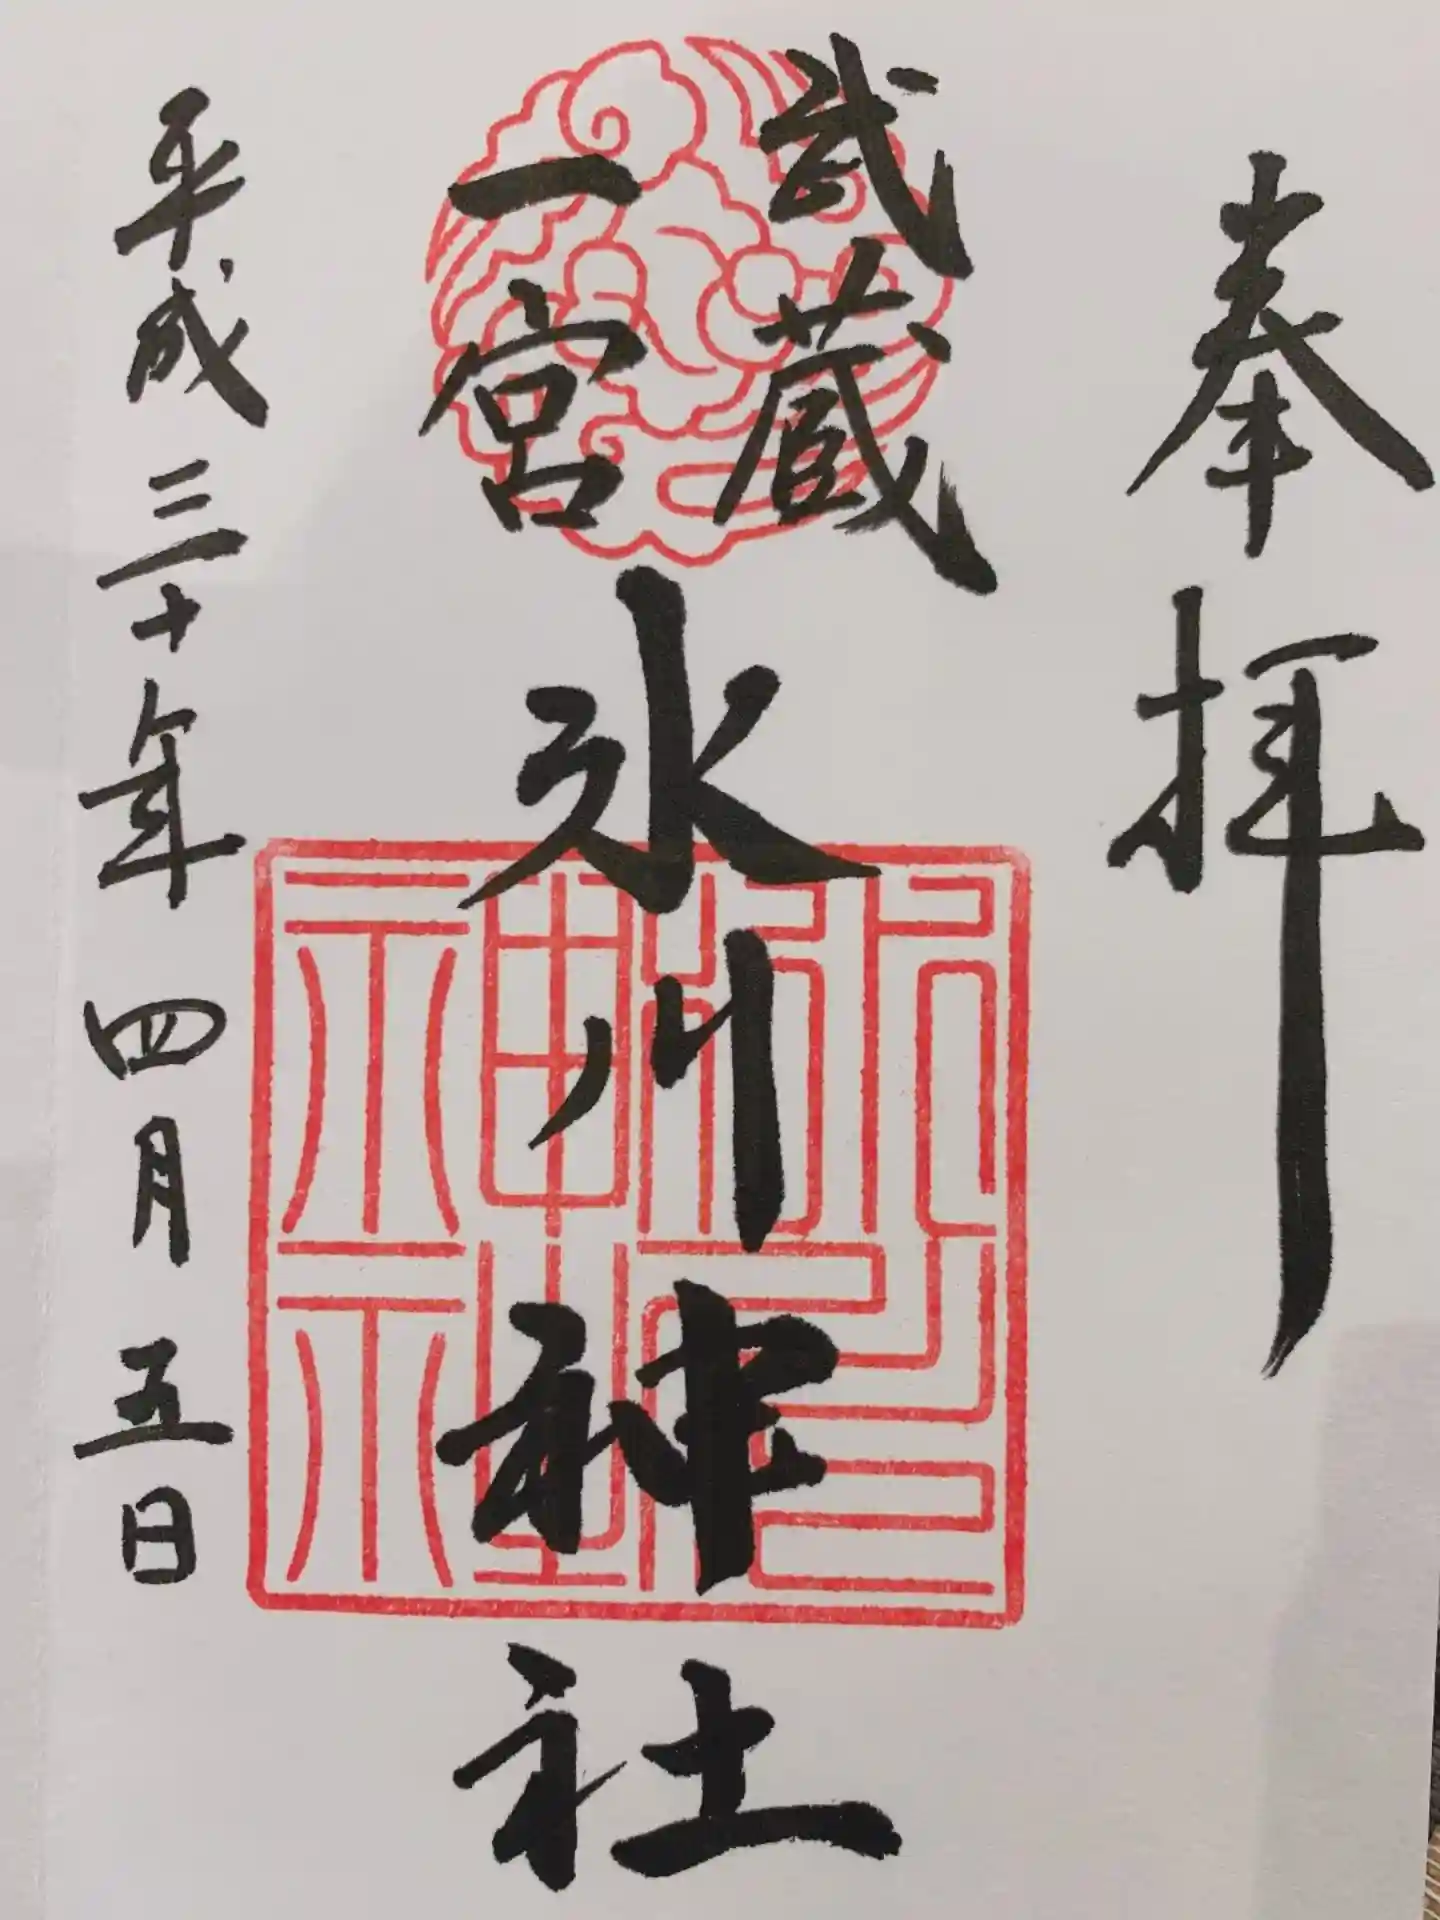 奉拝
武蔵
一宮
氷川神社
氷川神社
平成三十年四月五日